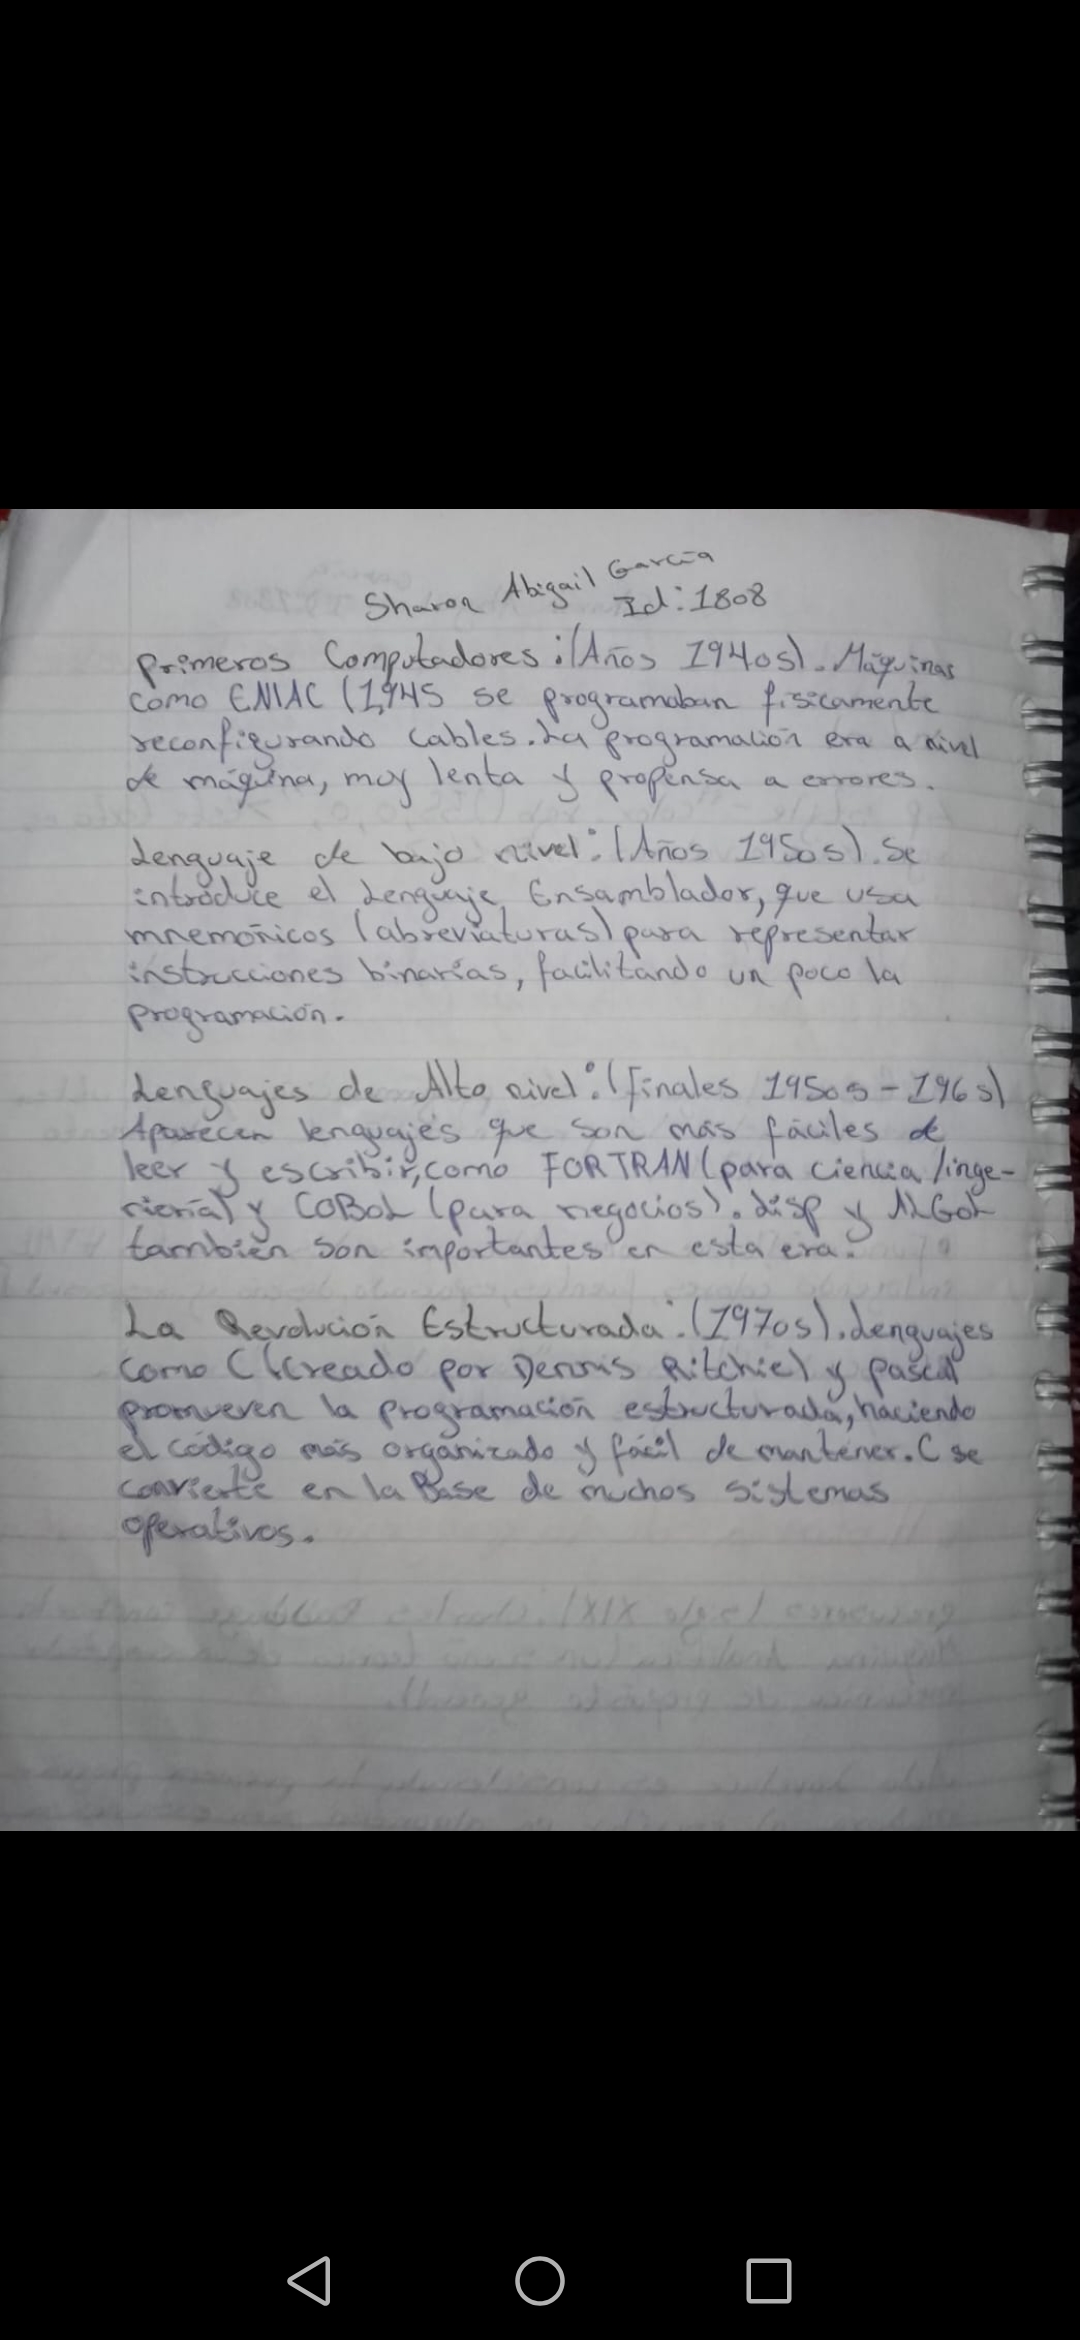 Sharon Abigail García
Id: 1808
Primeros Computadores: (Años 1940s). Máquinas
como ENIAC (1,945 se programaban físicamente
reconfigurando cables. La programación era a nivel
de máquina, muy lenta y propensa a errores.
Lenguaje de bajo nivel: (Años 1950s). Se
introduce el Lenguaje Ensamblador, que usa
mnemónicos (abreviaturas) para representar
instrucciones binarias, facilitando un poco la
programación.
Lenguajes de Alto nivel: (finales 1950s - 196s)
Aparecen lenguajes que son más fáciles de
leer y escribir, como FORTRAN (para ciencia/inge-
niería) y COBOL (para negocios). Lisp y ALGOL
también son importantes en esta era.
La Revolución Estructurada: (1970s). Lenguajes
como C (Creado por Dennis Ritchie) y pascal
promueven la programación estructurada, haciendo
el código más organizado y fácil de mantener. C se
convierte en la Base de muchos sistemas
operativos.